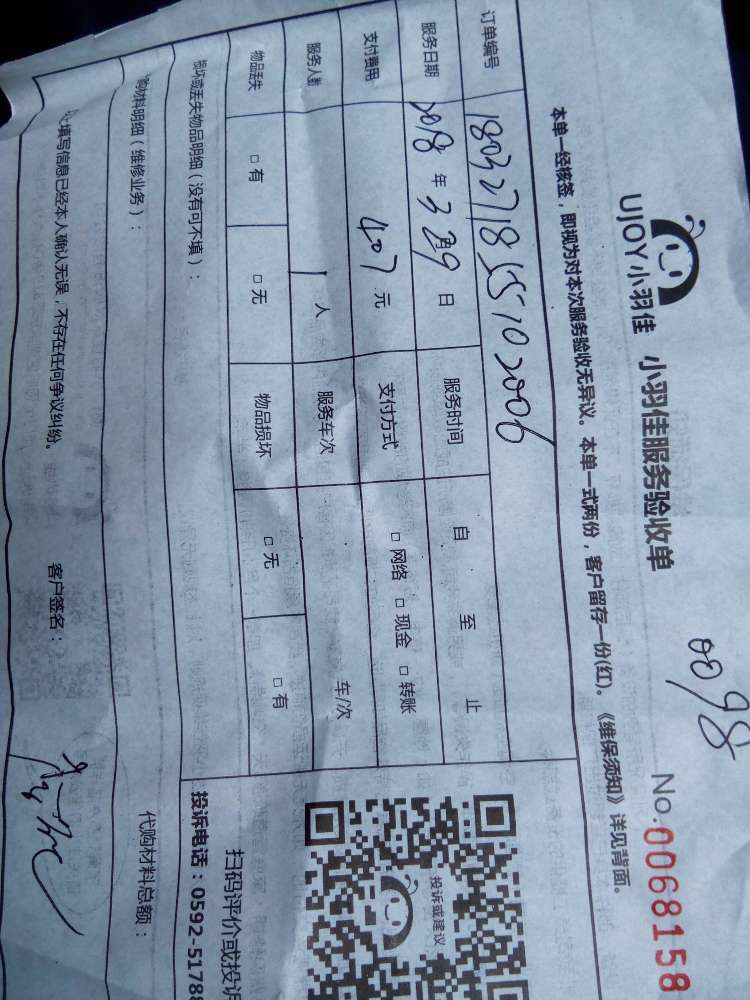 0098
UJOY小羽佳 小羽佳服务验收单
No.0068158
本单一经核签，即视为对本次服务验收无异议。本单一式两份，客户留存一份(红)。《维保须知》详见背面。
订单编号 1803271855102006
服务日期 2018年3月29日 服务时间 自 至 止
支付费用 407元 支付方式 □网络 □现金 □转账
服务人数 1人 服务车次 车/次
物品丢失 □有 □无 物品损坏 □无 □有
损坏或丢失物品明细（没有可不填）：
购材料明细（维修业务）： 代购材料总额：
填写信息已经本人确认无误，不存在任何争议纠纷。 客户签名：
投诉或建议
扫码评价或投诉
投诉电话：0592-5178